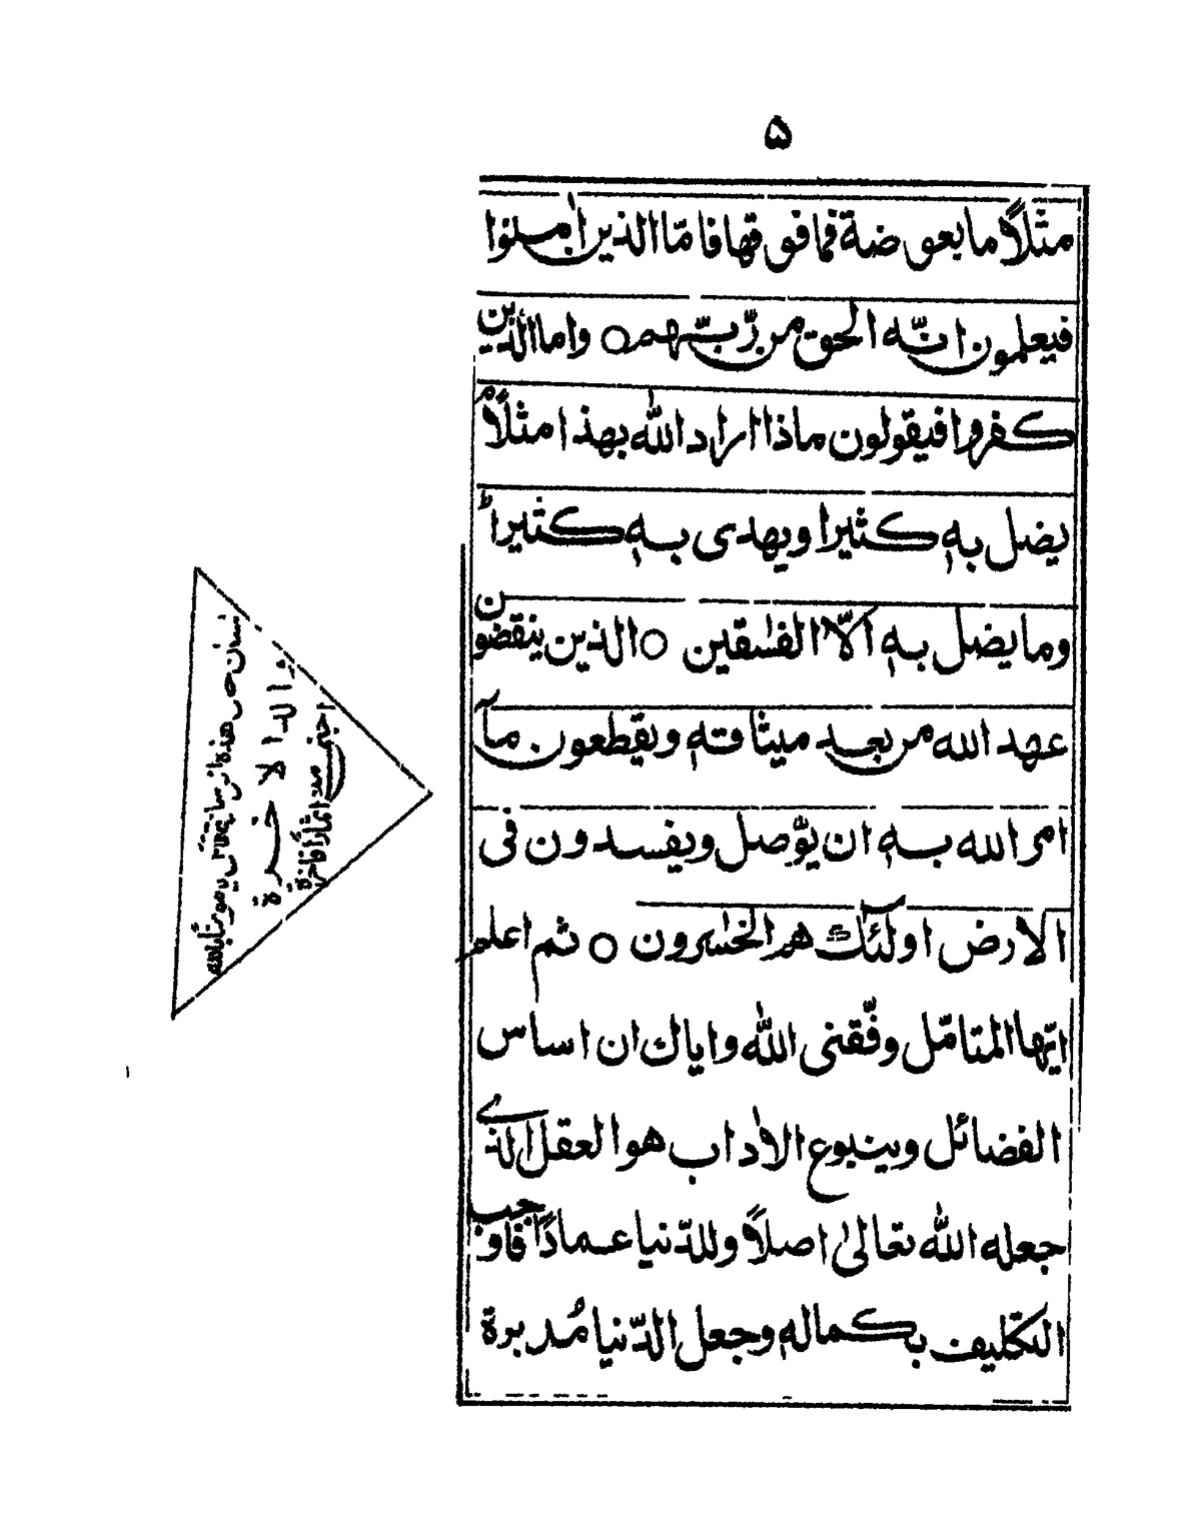 ۵
مثلاً ما بعوضة فما فوقها فامّا الذين اٰمنوا
فيعلمون انّه الحق من رّبّهم ○ واما الذين
كفروا فيقولون ماذا اراد اللّٰه بهذا مثلاًم
يضل بهٖ كثيرا ويهدى بهٖ كثيراط
وما يضل بهٖ الّا الفٰسقين ○ الذين ينقضون
عهد الله من بعد ميثاقهٖ ويقطعون مآ
امر الله بهٖ ان يّوصل ويفسدون فى
الارض اولٓئك هم الخٰسرون ○ ثم اعلم
ايّها المتامّل وفّقنى اللّٰه واياك ان اساس
الفضائل وينبوع الاٰداب هو العقل الذى
جعله اللّٰه تعالىٰ اصلاً وللدّنيا عماداً فاوجب
التكليف بكماله وجعل الدّنيا مُدبرة
والدالاخرة